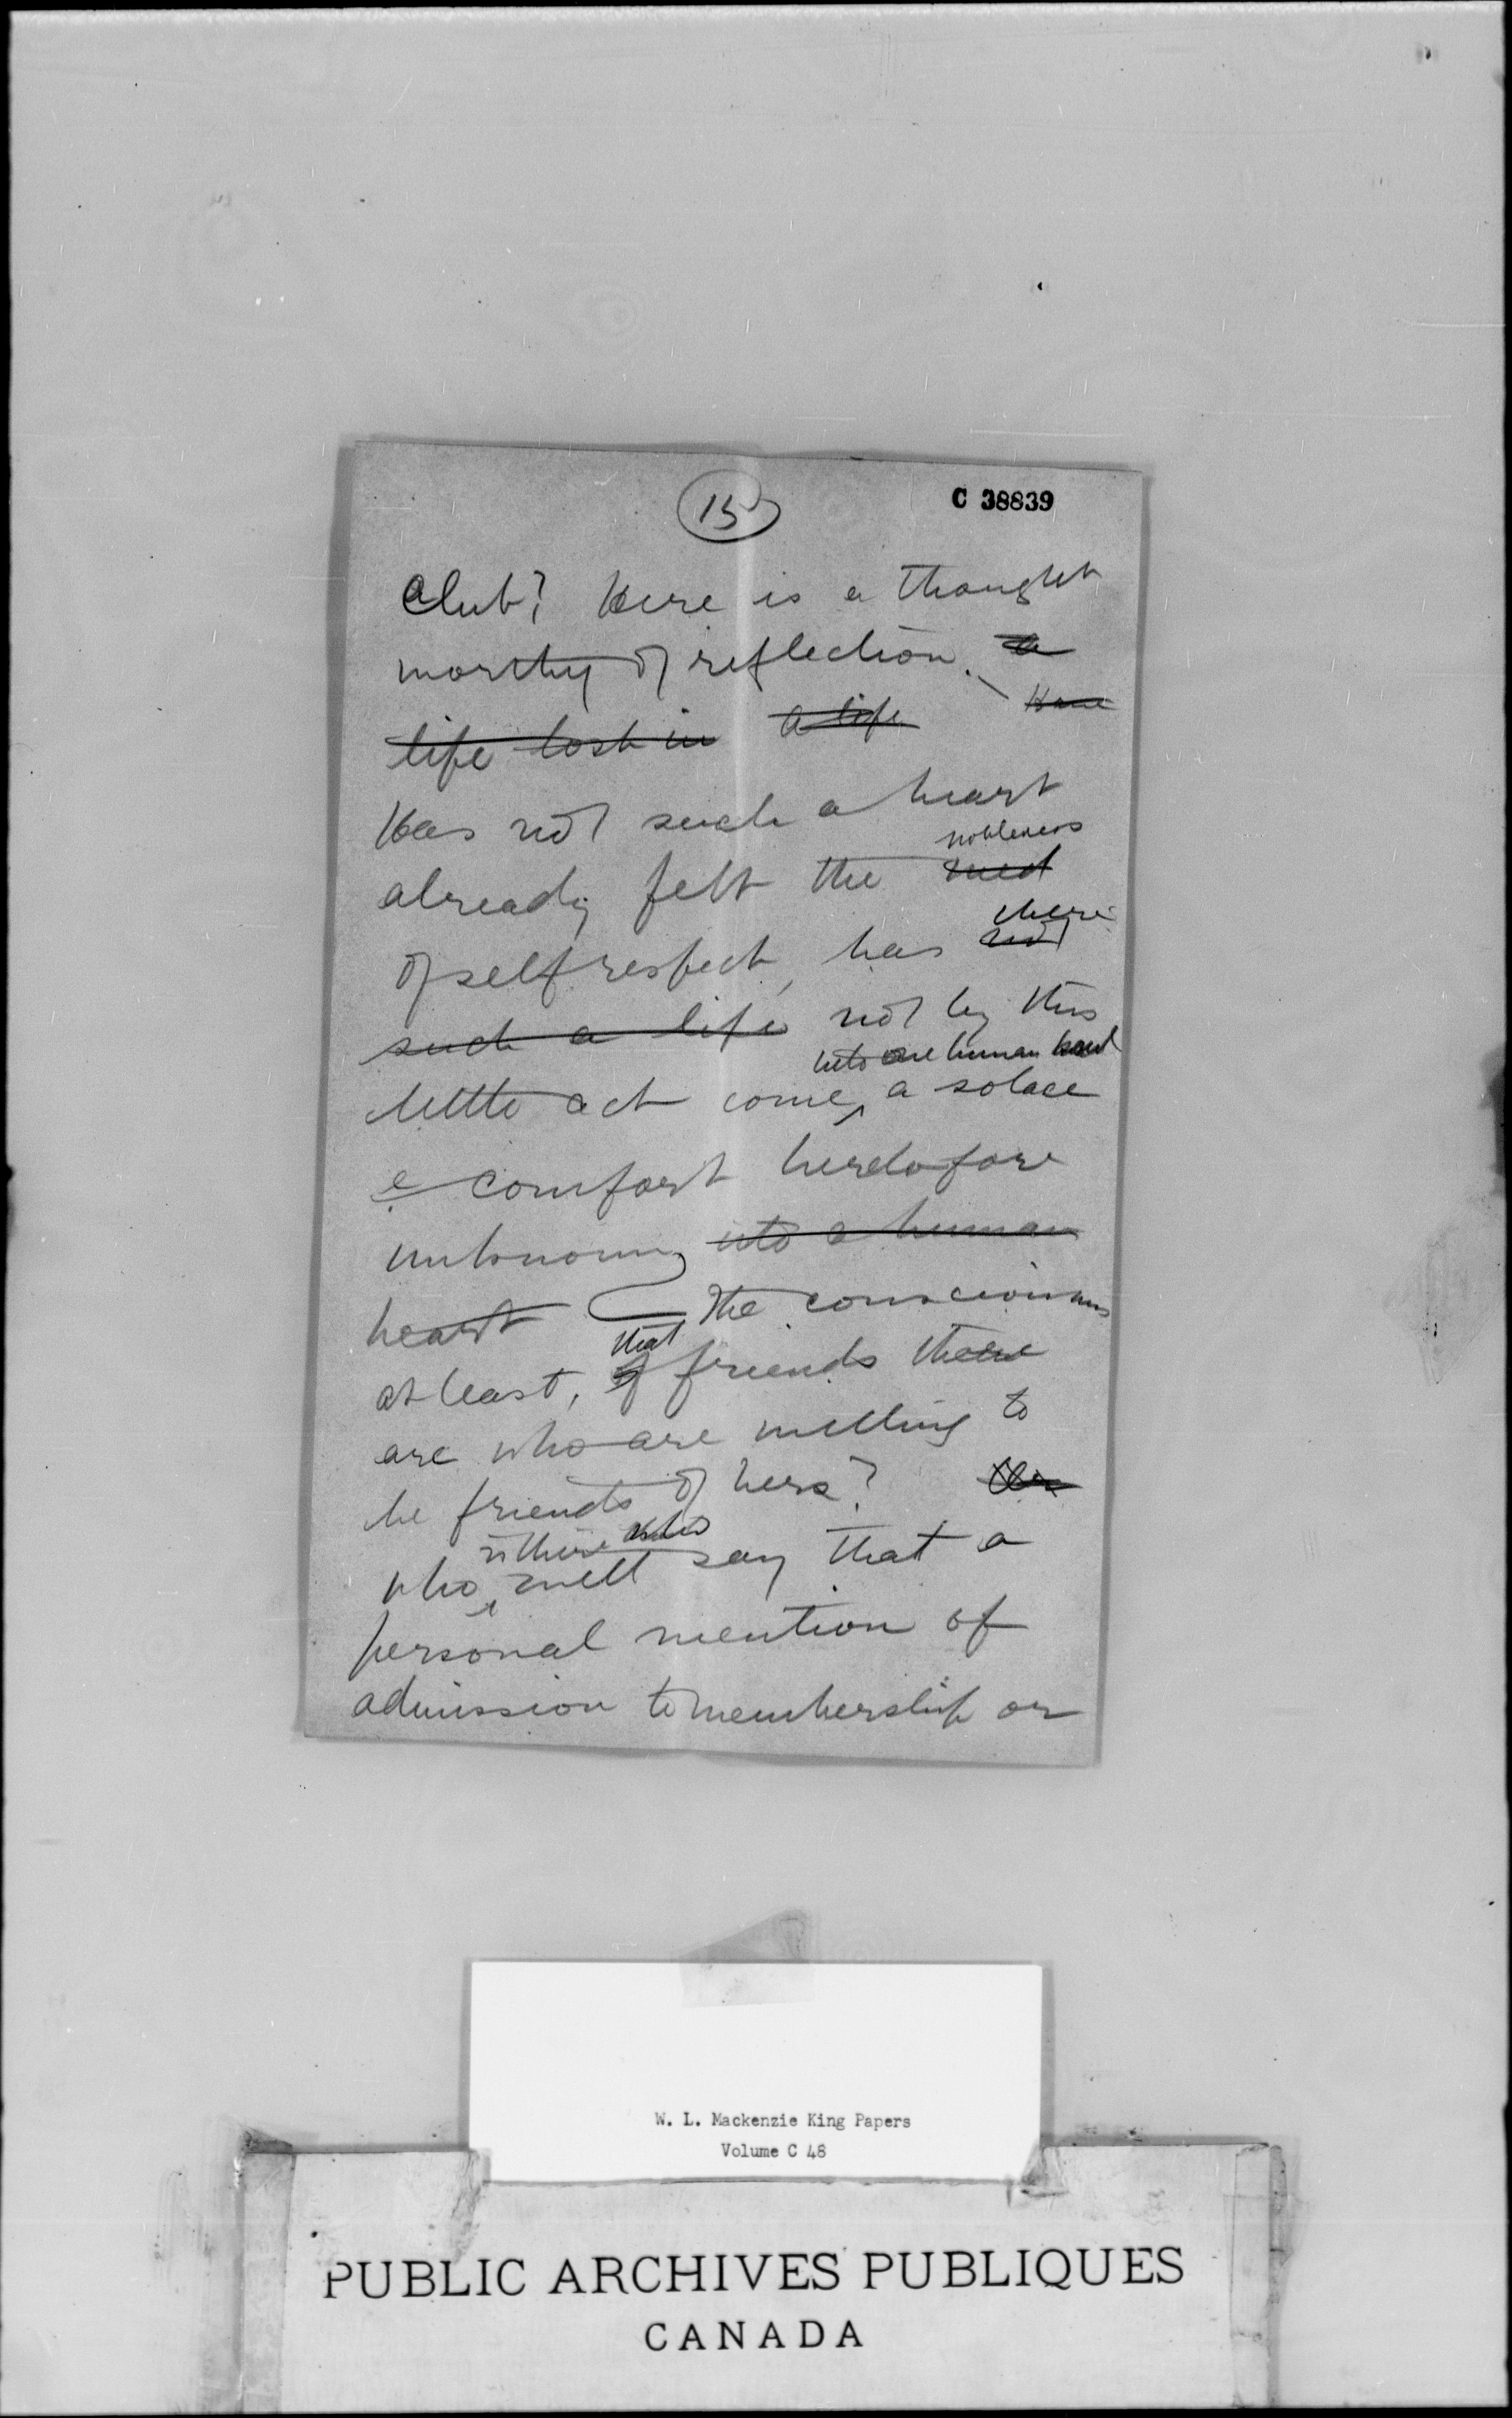 15
C 38839
Club? Here is a thought
worthy of reflection. a
life lost in a life
Has not such a heart
nobleness
already felt the
there
of self respect, has not
such a life not by this
into one human soul
little act come, a solace
& comfort heretofore
unknown, into a human
heart The consciousness
that
at least, of friends there
are who are willing to
be friends of hers?
is there who
who, will say that a
personal mention of
admission to membership or
W. L. Mackenzie King Papers
Volume C 48
PUBLIC ARCHIVES PUBLIQUES
CANADA